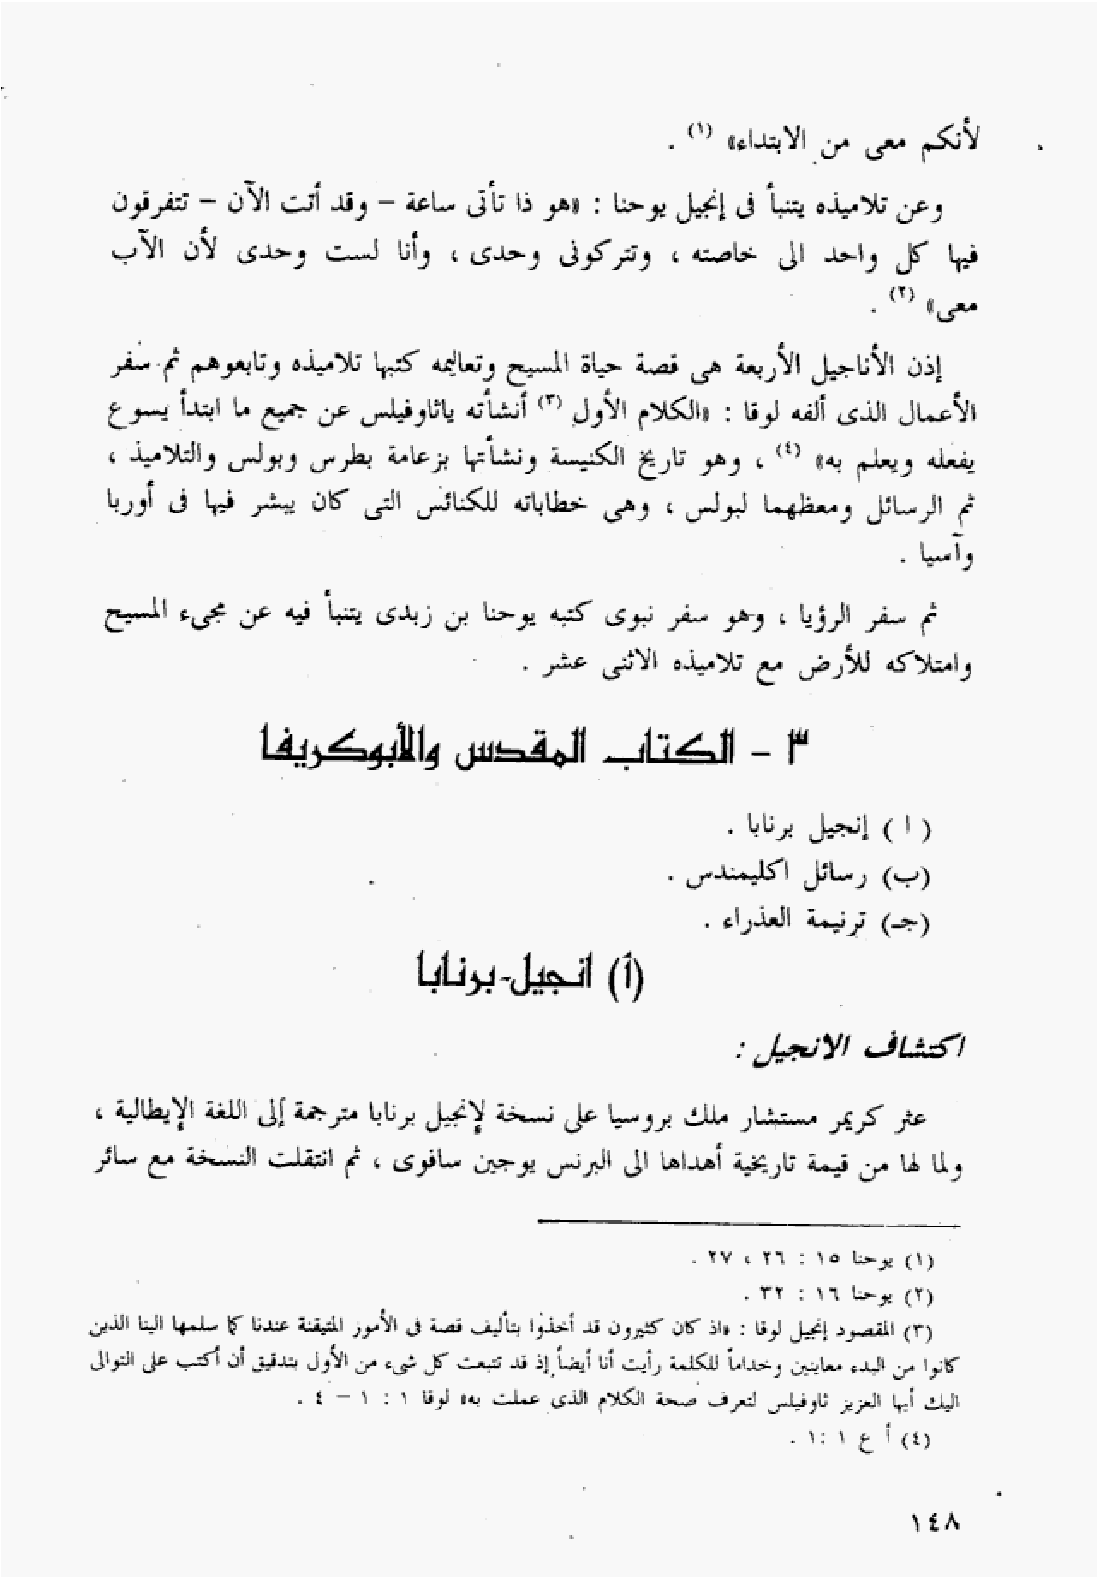 لأنكم معى من الابتداء» (١) .
وعن تلاميذه يتنبأ فى إنجيل يوحنا : «هو ذا تأتى ساعة – وقد أتت الآن – تتفرقون
فيها كل واحد الى خاصته ، وتتركونى وحدى ، وأنا لست وحدى لأن الآب
معى» (٢) .
إذن الأناجيل الأربعة هى قصة حياة المسيح وتعاليمه كتبها تلاميذه وتابعوهم ثم سفر
الأعمال الذى ألفه لوقا : «الكلام الأول (٣) أنشأته ياثاوفيلس عن جميع ما ابتدأ يسوع
يفعله ويعلم به» (٤) ، وهو تاريخ الكنيسة ونشأتها بزعامة بطرس وبولس والتلاميذ ،
ثم الرسائل ومعظهما لبولس ، وهى خطاباته للكنائس التى كان يبشر فيها فى أوربا
وآسيا .
ثم سفر الرؤيا ، وهو سفر نبوى كتبه يوحنا بن زبدى يتنبأ فيه عن مجىء المسيح
وامتلاكه للأرض مع تلاميذه الاثنى عشر .
٣ – الكتاب المقدس والأبوكريفا
( ا ) إنجيل برنابا .
(ب) رسائل اكليمندس .
(جـ) ترنيمة العذراء .
(أ) انجيل-برنابا
اكتشاف الانجيل :
عثر كريمر مستشار ملك بروسيا على نسخة لإنجيل برنابا مترجمة إلى اللغة الإيطالية ،
ولما لها من قيمة تاريخية أهداها الى البرنس يوجين سافوى ، ثم انتقلت النسخة مع سائر
(١) يوحنا ١٥ : ٢٦ ، ٢٧ .
(٢) يوحنا ١٦ : ٣٢ .
(٣) المقصود إنجيل لوقا : «اذ كان كثيرون قد أخذوا بتأليف قصة فى الأمور المتيقنة عندنا كما سلمها الينا الذين
كانوا من البدء معاينين وخداماً للكلمة رأيت أنا أيضاً إذ قد تتبعت كل شىء من الأول بتدقيق أن أكتب على التوالى
اليك أيها العزيز ثاوفيلس لتعرف صحة الكلام الذى عملت به» لوقا ١ : ١ – ٤ .
(٤) أ ع ١ :١ .
١٤٨